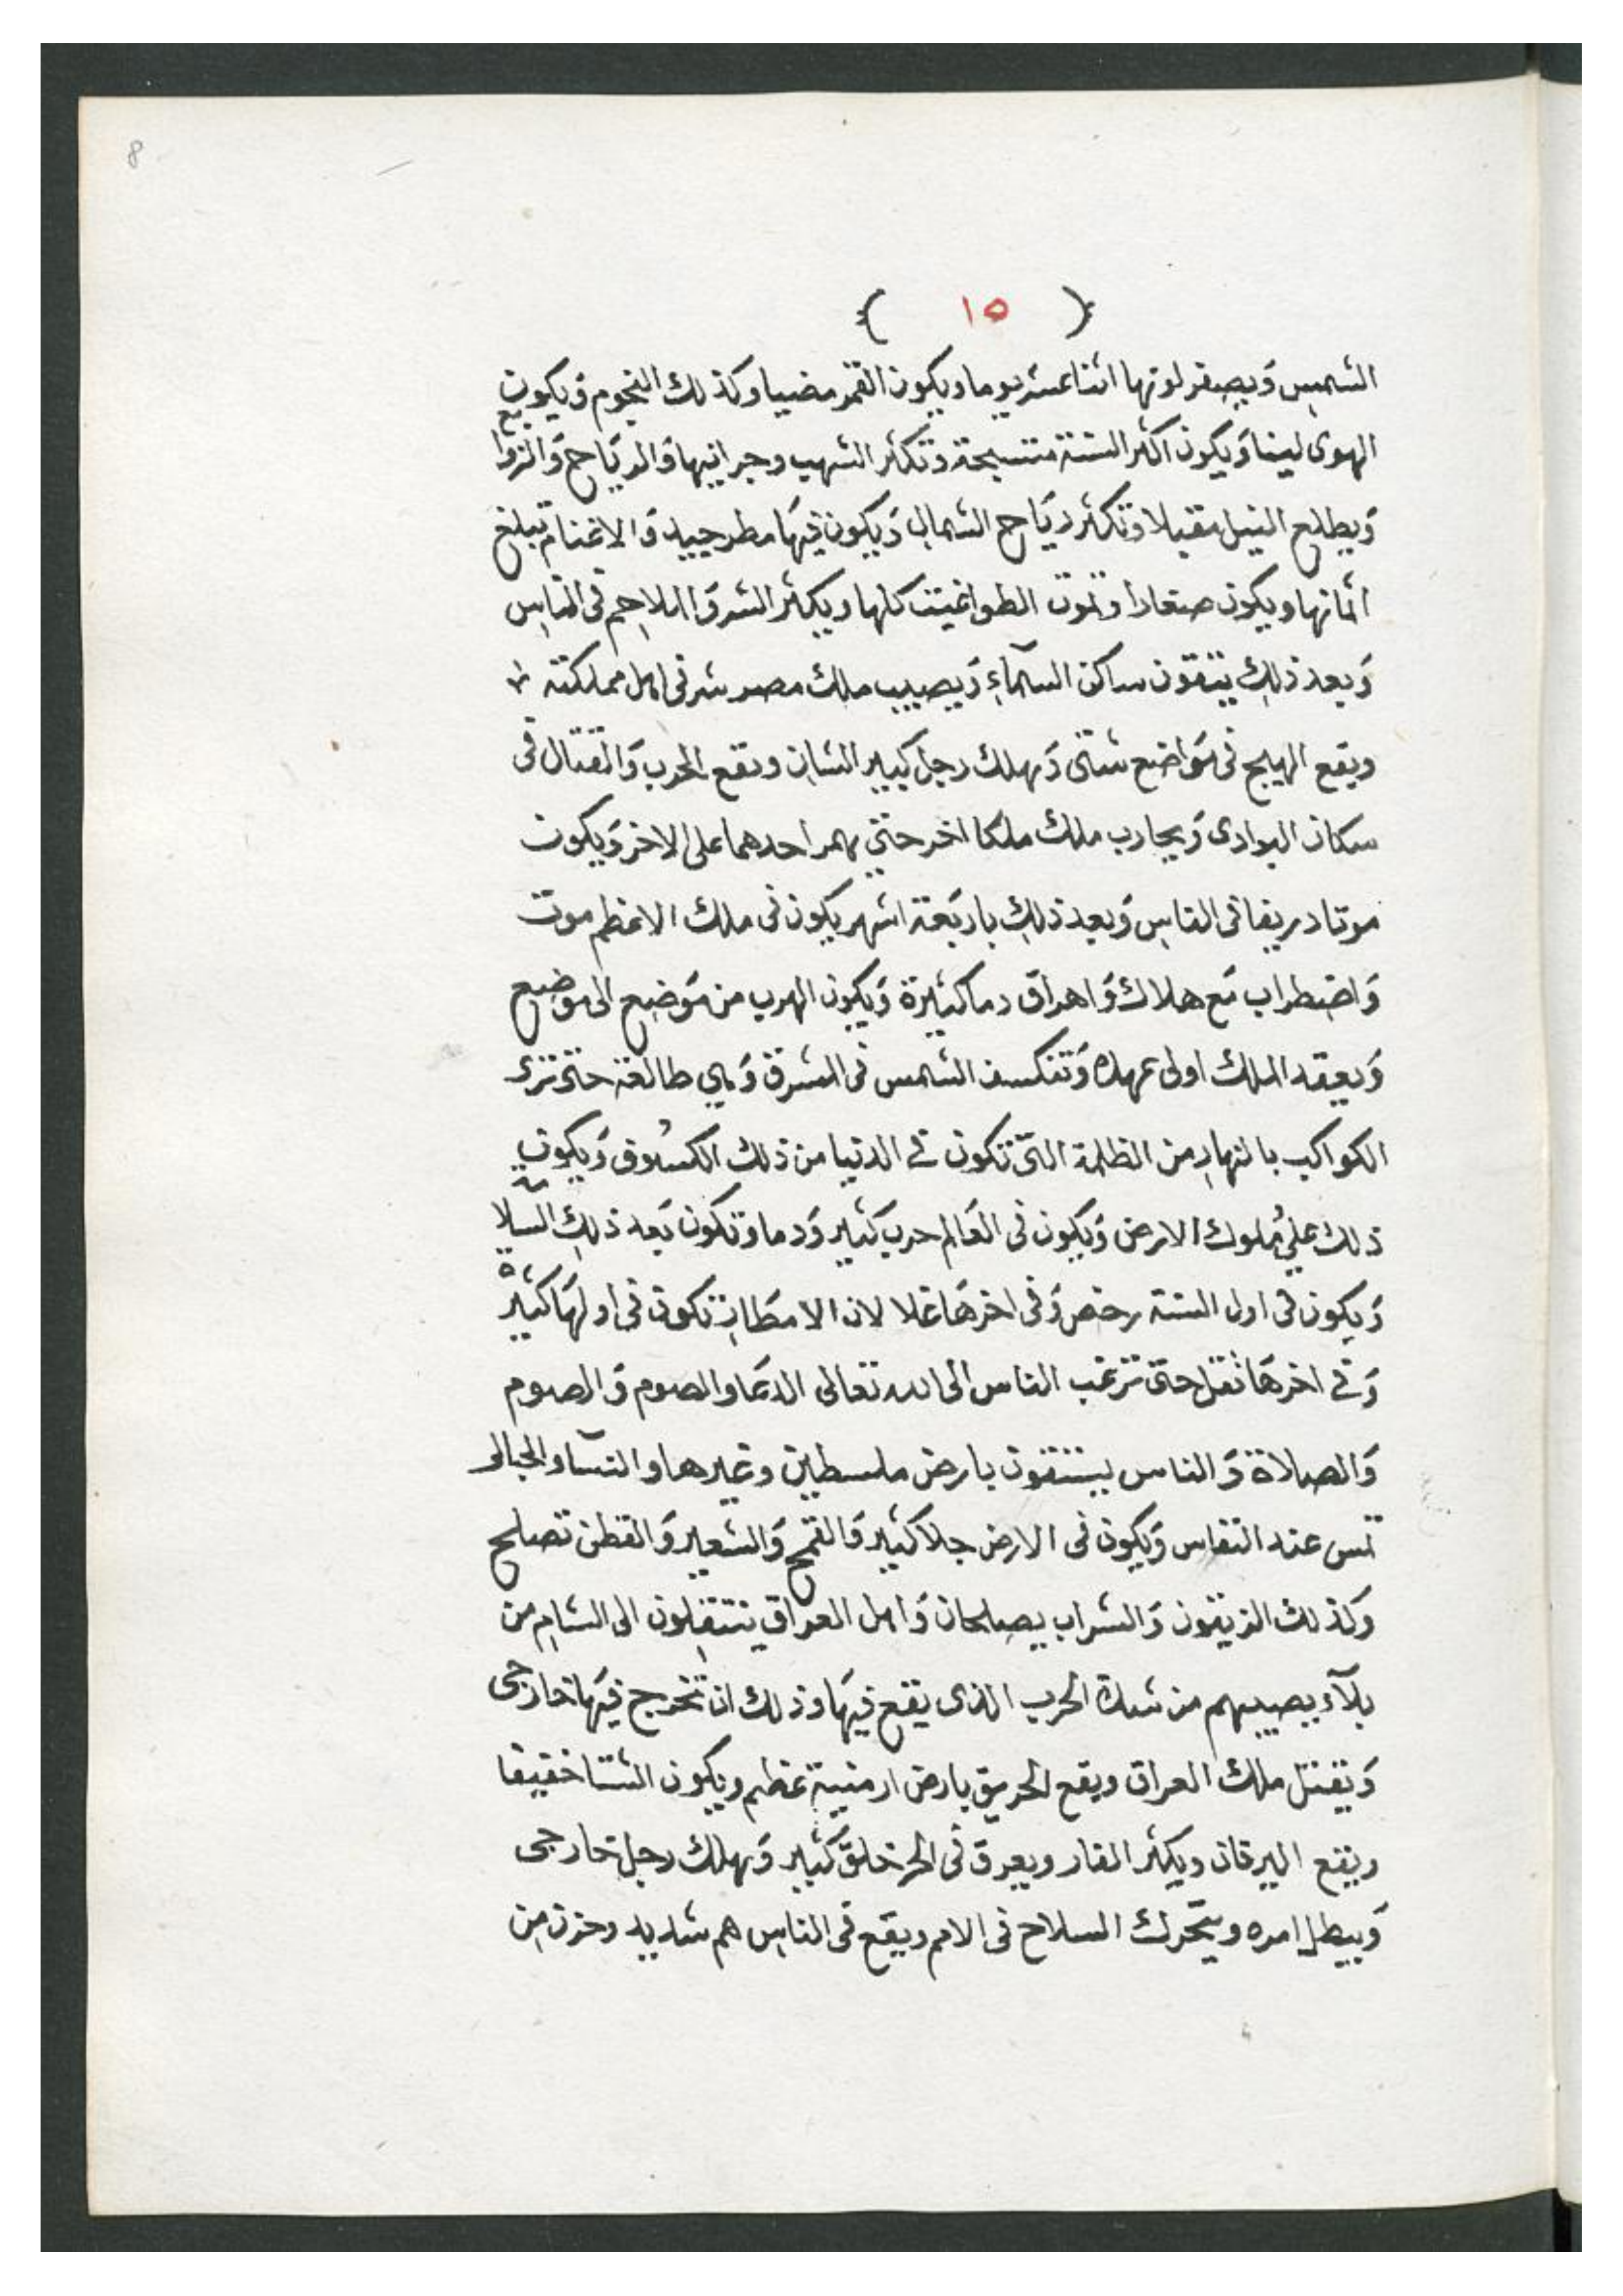 8
( ١٥ )
الشمس وَيصفر لونها اثنا عشر يوما ويكون القمر مضيا وكذلك النجوم وَيكون
الهوى لينا وَيكون اكثر السنة وتكثر الشهب وجرانيها وَالرياح وَالزوابع
وَيطلع النيل مقبلا وتكثر رياح الشمال وَيكون فيهَا مطر جييد وَالاغنام تبلغ
اثمانها ويكون صغارا وتموت الطواغيت كلها ويكثر الشر وَالملاحم فى الناس
وَبعد ذلك يتقون ساكن السمآءِ وَيصيب ملك مصر شر فى اهل مملكته
ويقع الهيج فى موَاضع شتى وَيهلك رجل كبير الشان ويقع الحرب وَالقتال فى
سكان البوادى وَيحارب ملك ملكا اخر حتى احدهما على الاخر وَيكون
موتا دريفا فى الناس وَبعد ذلك باربَعة اشهر يكون فى ملك الاعظم موت
وَاضطراب مَع هلاك وَاهراق دما كثيرة وَيكون الهرب من موَضع الى موَضع
وَيعقد الملك اولى عهده وَتنكسف الشمس فى المشرق وَهي طالعة حتى ترى
الكواكب بالنهار من الظلمة التى تكون في الدنيا من ذلك الكسُوف وَيكون
ذلك علي مُلوك الارض وَيكون فى العَالم حرب كثير وَدما وتكون بَعد ذلك السلامة
وَيكون فى اول السنة رخص وَفى اخرهَا غلا لان الامطَار تكون فى اولهَا كثيرة
وَفي اخرهَا تقل حتى ترغب الناس الى الله تعالى الدعَا والصوم وَالصوم
وَالصلاة وَالناس يستقون بارض ملسطين وغيرها والنسآ والحبالى
تمس عند النفاس وَيكون فى الارض جلا كثير وَالقمح وَالشعير وَالقطن تصلح
وكذلك الزيتون وَالشراب يصلحان وَاهل العراق ينتقلون الى الشام من
بلآء يصيبهم من شدة الحرب الذى يقع فيهَا وذلك ان تخرج فيهَا خارجى
وَيقتل ملك العراق ويقع الحريق بارض ارمنية عظم ويكون الشتا خفيفا
ويقع اليرقان ويكثر الفار ويعرق فى الحر خلقَ كثير وَيهلك رجل خارجى
وَيبطل امره ويتحرك السلاح فى الامم ويقع فى الناس هم شديد وحزن من